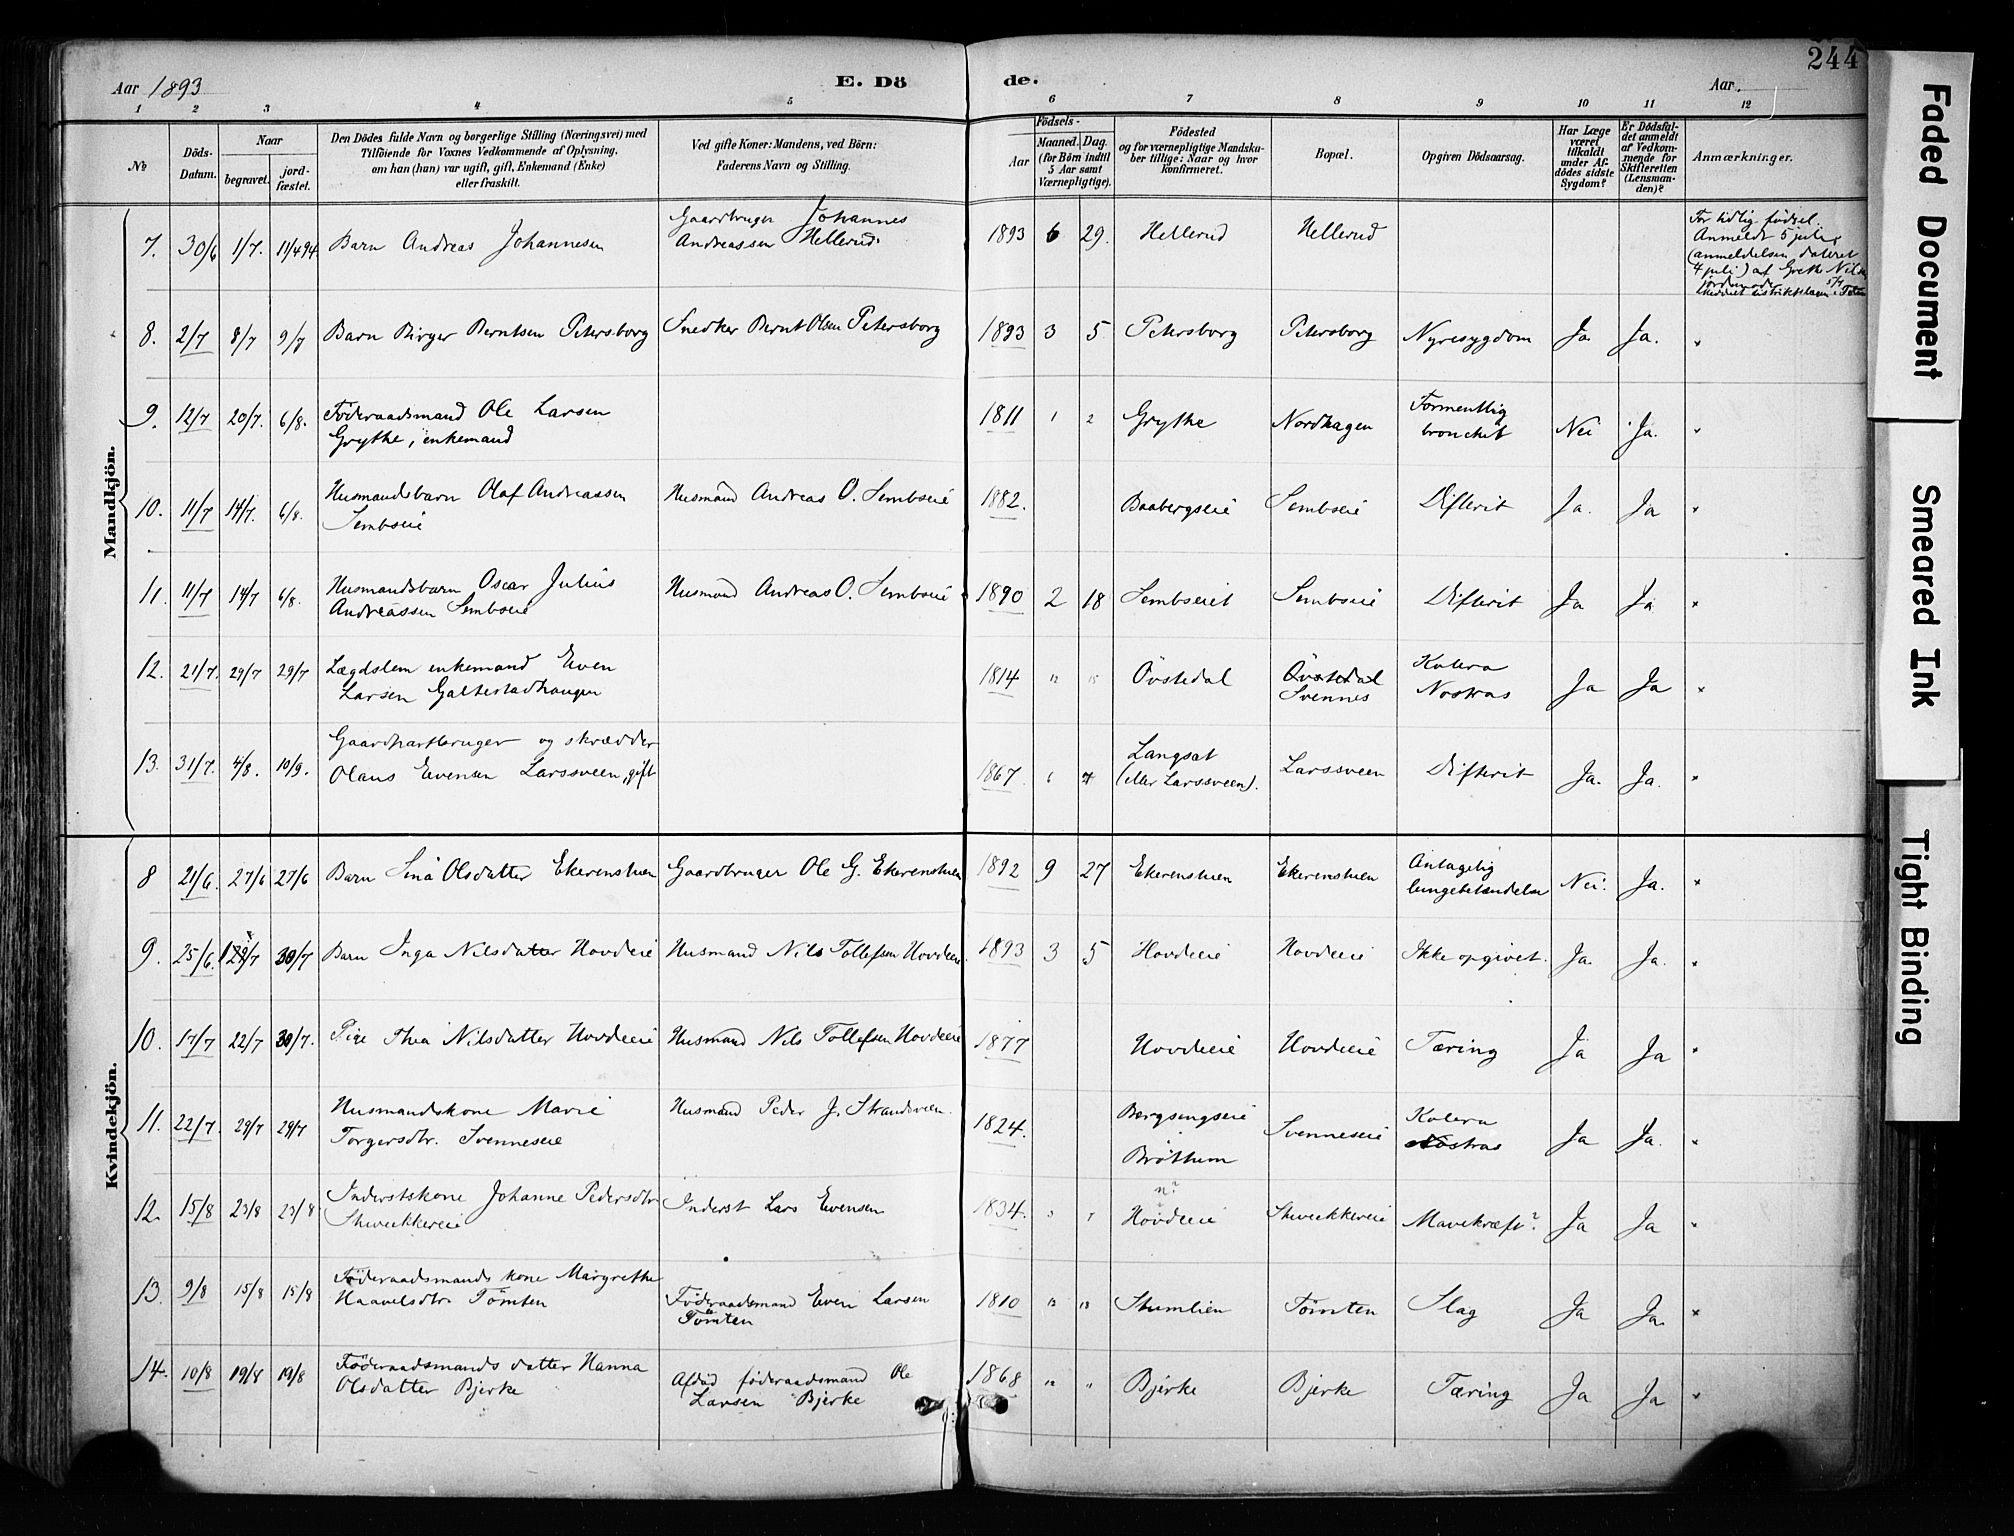 244
Aar 1893
E. Dö
de.
Aar
1 2 3 4 5 6 7 8 9 10 11 12
№
Döds-
Datum.
Naar
begravet.
jord-
fæstet.
Den Dödes fulde Navn og borgerlige Stilling (Næringsvei) med
Tilföiende for Voxnes Vedkommende af Oplysning,
om han (hun) var ugift, gift, Enkemand (Enke)
eller fraskilt.
Ved gifte Koner: Mandens, ved Börn:
Faderens Navn og Stilling.
Födsels-
Aar
Maaned. Dag.
(for Börn indtil
5 Aar samt
Værnepligtige).
Födested
og for værnepligtige Mandska-
ber tillige: Naar og hvor
konfirmeret.
Bopæl.
Opgiven Dödsaarsag.
Har Læge
været
tilkaldt
under Af-
dödes sidste
Sygdom?
Er Dödsfal-
det anmeldt
af Vedkom-
mende for
Skifteretten
(Lensman-
den)?
Anmærkninger.
Mandkjön.
7. 30/6 1/7. 11/4 94. Barn Andreas Johannesen
Gaardbruger Johannes
Andreassen Hellerud.
1893 6 29. Hellerud Hellerud
For tidlig födsel.
Anmeldt 5 juli
(anmeldelsen dateret
4 juli) af Grethe
jordmoder
8. 2/7 8/7 9/7 Barn Birger Berntsen Petersborg Snedker Bernt Olsen Petersborg 1893 3 5 Petersborg Petersborg Nyresygdom Ja Ja. "
9. 12/7 20/7. 6/8. Föderaadsmand Ole Larsen
Grythe, enkemand
1811 " " Grythe Nordhagen
Formentlig
bronchit
Nei Ja. "
10. 11/7 14/7. 6/8. Husmandsbarn Olaf Andreassen
Sembseie
Husmand Andreas O. Sembseie 1882. Baabergseie Sembseie Difterit Ja. Ja "
11. 11/7 14/7 6/8. Husmandsbarn Oscar Julius
Andreassen Sembseie
Husmand Andreas O. Sembseie 1890 2 18 Sembseiet Sembseie Difterit Ja Ja "
12. 21/7. 29/7 29/7 Lægdslem enkemand Even
Larsen Galterudhaugen
1814 " " Övstedal
Övstedal
Svennes
Kolera
Nostras
Ja Ja "
13. 31/7. 4/8. 10/9. Gaardpartbruger og skrædder
Olaus Evensen Larssveen, gift
1867. " "
Langsæt
(eller Larssveen).
Larssveen Difterit Ja. Ja. "
Kvindekjön.
8 21/6. 27/6 27/6 Barn Sina Olsdatter Ekerenstuen Gaardbruger Ole G. Ekerenstuen 1892 9 27 Ekerenstuen Ekerenstuen
Antagelig
lungebetændelse
Nei. Ja. "
9. 25/6. 30/7 Barn Inga Nilsdatter Hovdeeie Husmand Nils Tollefsen Hovdeeie. 1893 3 5 Hovdeeie Hovdeeie Ikke opgivet. Ja. Ja. "
10. 17/7 22/7 30/7. Pige Thea Nilsdatter Hovdeeie Husmand Nils Tollefsen Hovdeeie 1877 Hovdeeie Hovdeeie Tæring Ja Ja "
11. 22/7. 29/7 29/7 Husmandskone Marie
Torgersdtr. Svenneseie
Husmand Peder J. Strandsveen. 1824.
Bergsengseie
Bröttum
Svenneseie
Kolera
Nostras
Ja Ja. "
12. 15/8 23/8 23/8 Inderstskone Johanne Pedersdtr.
Skvekkereie
Inderst Lars Evensen 1834. " " Hovdeeie Skvekkereie Mavekræft? Ja Ja "
13. 9/8 15/8 15/8 Föderaadsmands kone Margrethe
Haavelsdtr. Tömten
Föderaadsmand Even Larsen
Tömten
1810 " " Skumlien Tömten Slag Ja Ja. "
14. 10/8 19/8 19/8 Föderaadsmands datter Hanna
Olsdatter Bjerke
Afdöd föderaadsmand Ole
Larsen Bjerke
1868 " " Bjerke Bjerke Tæring Ja Ja "
Faded Document
Smeared Ink
Tight Binding